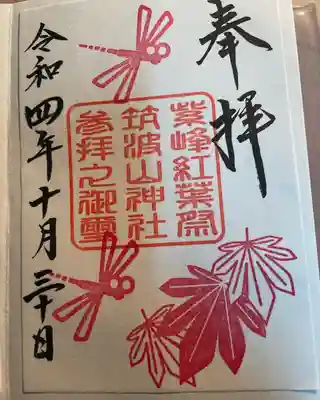 奉拝
紫峰紅葉祭
筑波山神社
参拝之御璽
令和四年十月三十日